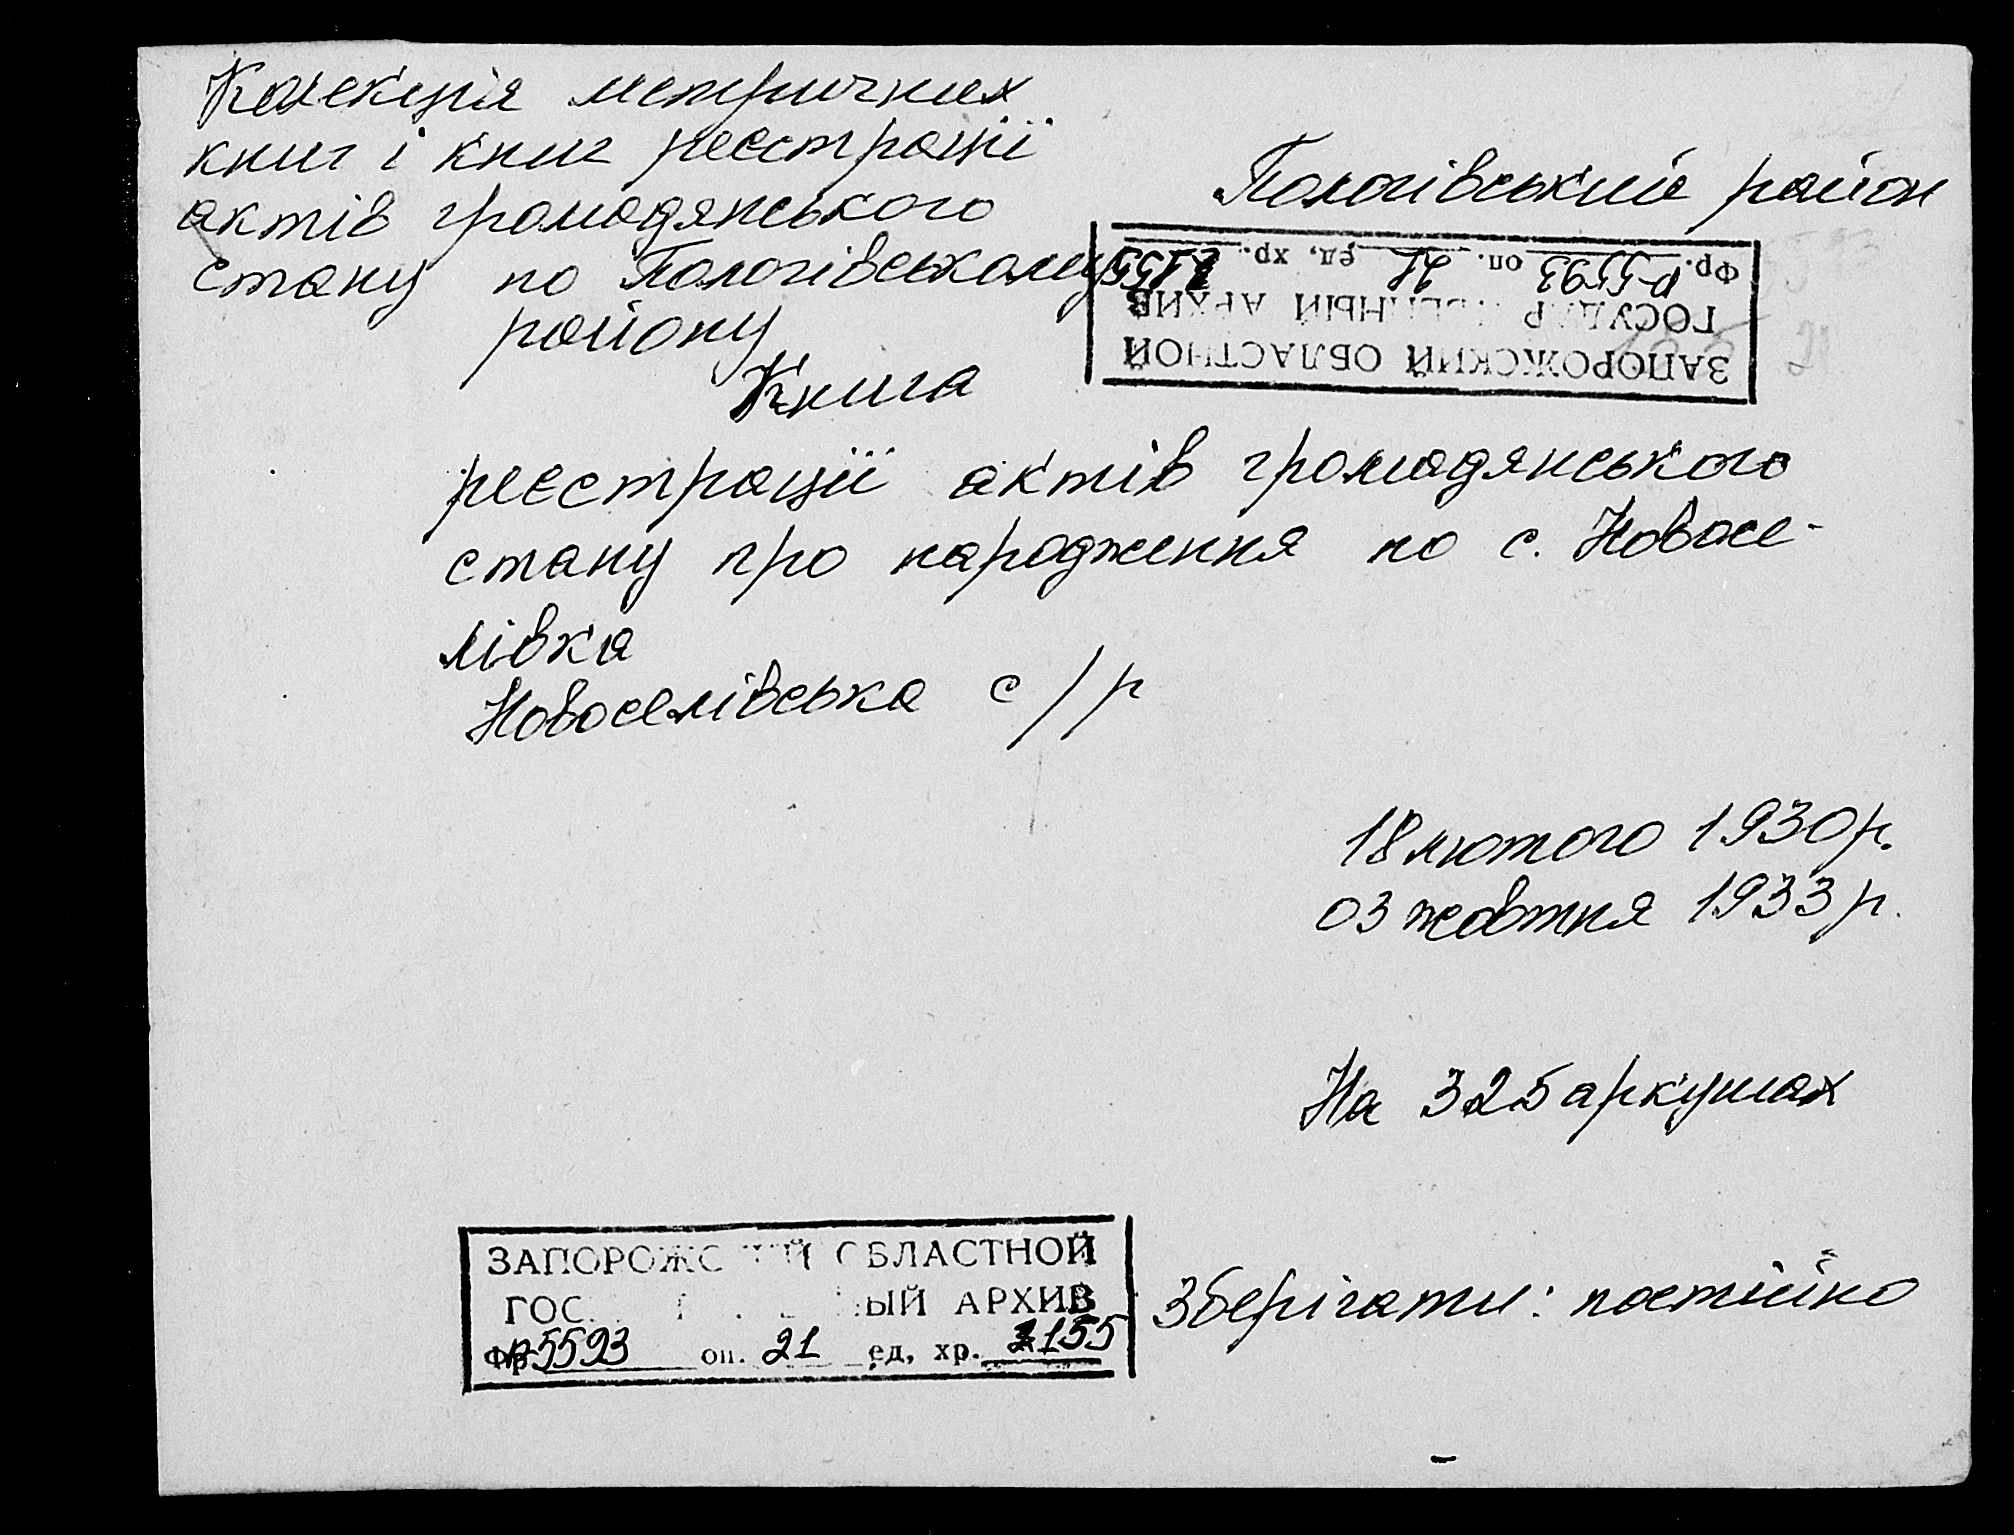 Колекція метричних
книг і книг реєстрації
актів громадянського
стану по Пологівському
району
Пологівський район
ЗАПОРОЖСКИЙ ОБЛАСТНОЙ
ГОСУДАРСТВЕННЫЙ АРХИВ
Фр. Р-5593 оп. 21 ед. хр. 1155
Книга
реєстрації актів громадянського
стану про народження по с. Новосе-
лівка
Новоселівська с/р
18 лютого 1930 р.
03 жовтня 1933 р.
На 325 аркушах
ЗАПОРОЖСКИЙ ОБЛАСТНОЙ
ГОС ЫЙ АРХИВ
Фр Р-5593 оп. 21 ед, хр. 1155
Зберігати: постійно